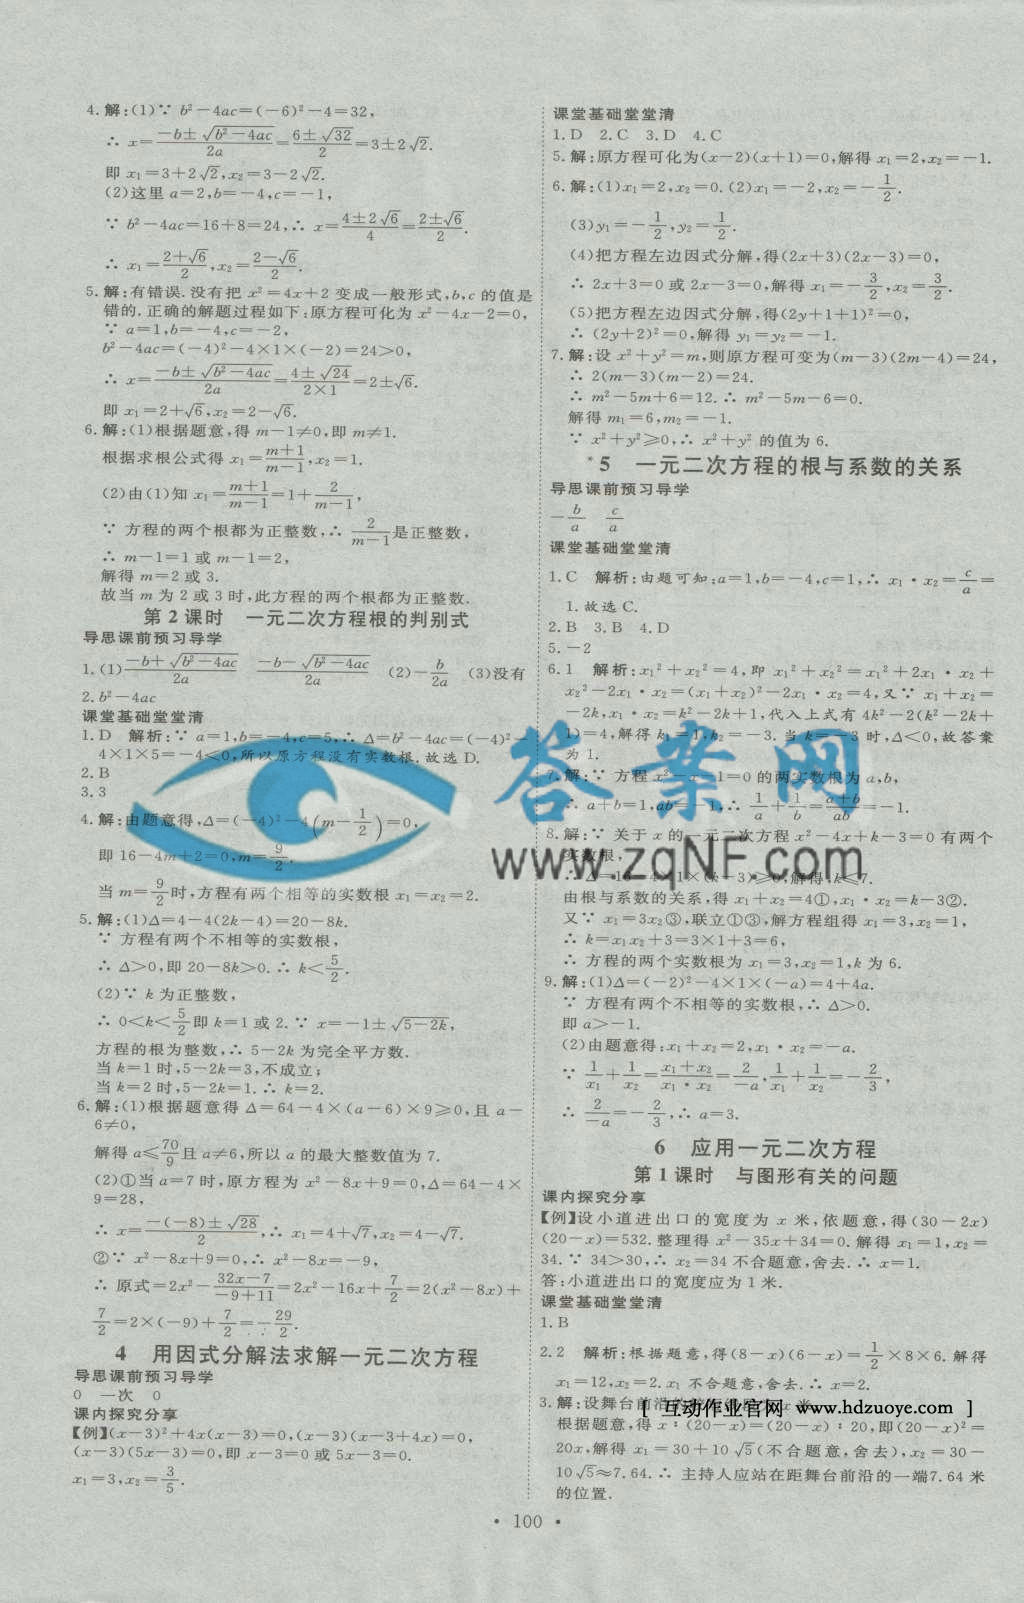 4.解:(1)∵ b²-4ac=(-6)²-4=32,
∴ x=(-b±√(b²-4ac))/2a=(6±√32)/2=3±2√2.
即 x₁=3+2√2,x₂=3-2√2.
(2)这里 a=2,b=-4,c=-1,
∵ b²-4ac=16+8=24,∴ x=(4±2√6)/4=(2±√6)/2.
∴ x₁=(2+√6)/2,x₂=(2-√6)/2.
5.解:有错误.没有把 x²=4x+2 变成一般形式,b,c 的值是
错的.正确的解题过程如下:原方程可化为 x²-4x-2=0,
∵ a=1,b=-4,c=-2,
b²-4ac=(-4)²-4×1×(-2)=24>0,
∴ x=(-b±√(b²-4ac))/2a=(4±√24)/(2×1)=2±√6.
即 x₁=2+√6,x₂=2-√6.
6.解:(1)根据题意,得 m-1≠0,即 m≠1.
根据求根公式得 x₁=(m+1)/(m-1),x₂=1.
(2)由(1)知 x₁=(m+1)/(m-1)=1+2/(m-1),
∵ 方程的两个根都为正整数,∴ 2/(m-1)是正整数,
∴ m-1=1 或 m-1=2.
解得 m=2 或 3.
故当 m 为 2 或 3 时,此方程的两个根都为正整数.
第 2 课时 一元二次方程根的判别式
导思课前预习导学
1.(1)(-b+√(b²-4ac))/2a (-b-√(b²-4ac))/2a (2)-b/2a (3)没有
2.b²-4ac
课堂基础堂堂清
1.D 解析:∵ a=1,b=-4,c=5,∴ Δ=b²-4ac=(-4)²-
4×1×5=-4<0,所以原方程没有实数根.故选 D.
2.B
3.3
4.解:由题意得,Δ=(-4)²-4(m-1/2)=0,
即 16-4m+2=0,m=9/2.
当 m=9/2时,方程有两个相等的实数根 x₁=x₂=2.
5.解:(1)Δ=4-4(2k-4)=20-8k.
∵ 方程有两个不相等的实数根,
∴ Δ>0,即 20-8k>0.∴ k<5/2.
(2)∵ k 为正整数,
∴ 0<k<5/2即 k=1 或 2.∵ x=-1±√(5-2k),
方程的根为整数,∴ 5-2k 为完全平方数.
当 k=1 时,5-2k=3,不成立;
当 k=2 时,5-2k=1.∴ k=2.
6.解:(1)根据题意得 Δ=64-4×(a-6)×9≥0,且 a-
6≠0,
解得 a≤70/9且 a≠6,所以 a 的最大整数值为 7.
(2)①当 a=7 时,原方程为 x²-8x+9=0,Δ=64-4×
9=28,
∴ x=(-(-8)±√28)/2,∴ x₁=4+√7,x₂=4-√7.
②∵ x²-8x+9=0,∴ x²-8x=-9,
∴ 原式=2x²-(32x-7)/(-9+11)=2x²-16x+7/2=2(x²-8x)+
7/2=2×(-9)+7/2=-29/2.
4 用因式分解法求解一元二次方程
导思课前预习导学
0 一次 0
课内探究分享
【例】(x-3)²+4x(x-3)=0,(x-3)(x-3+4x)=0,
(x-3)(5x-3)=0,即 x-3=0 或 5x-3=0.
x₁=3,x₂=3/5.
课堂基础堂堂清
1.D 2.C 3.D 4.C
5.解:原方程可化为(x-2)(x+1)=0,解得 x₁=2,x₂=-1.
6.解:(1)x₁=2,x₂=0.(2)x₁=-2,x₂=-1/2.
(3)y₁=-1/2,y₂=1/2.
(4)把方程左边因式分解,得(2x+3)(2x-3)=0,
∴ 2x+3=0 或 2x-3=0,解得 x₁=-3/2,x₂=3/2.
(5)把方程左边因式分解,得(2y+1+1)²=0,
∴ (2y+2)²=0,解得 y₁=y₂=-1.
7.解:设 x²+y²=m,则原方程可变为(m-3)(2m-4)=24,
∴ 2(m-3)(m-2)=24.
∴ m²-5m+6=12.∴ m²-5m-6=0.
解得 m₁=6,m₂=-1.
∵ x²+y²≥0,∴ x²+y² 的值为 6.
*5 一元二次方程的根与系数的关系
导思课前预习导学
-b/a c/a
课堂基础堂堂清
1.C 解析:由题可知:a=1,b=-4,c=1,∴ x₁·x₂=c/a=
1.故选 C.
2.B 3.B 4.D
5.-2
6.1 解析:x₁²+x₂²=4,即 x₁²+x₂²=x₁²+2x₁·x₂+
x₂²-2x₁·x₂=(x₁+x₂)²-2x₁·x₂=4,又∵ x₁+x₂=
-2k,x₁·x₂=k²-2k+1,代入上式有 4k²-2(k²-2k+
1)=4,解得 k₁=1,k₂=-3.当 k=-3 时,Δ<0,故答案
为 1.
7.解:∵ 方程 x²-x-1=0 的两实数根为 a,b,
∴ a+b=1,ab=-1,∴ 1/a+1/b=(a+b)/ab=-1.
8.解:∵ 关于 x 的一元二次方程 x²-4x+k-3=0 有两个
实数根,
∴ Δ=16-4×1×(k-3)≥0,解得 k≤7.
由根与系数的关系,得 x₁+x₂=4①,x₁·x₂=k-3②.
又∵ x₁=3x₂③,联立①③,解方程组得 x₁=3,x₂=1,
∴ k=x₁x₂+3=3×1+3=6,
∴ 方程的两个实数根为 x₁=3,x₂=1,k 为 6.
9.解:(1)Δ=(-2)²-4×1×(-a)=4+4a.
∵ 方程有两个不相等的实数根,∴ Δ>0.
即 a>-1.
(2)由题意得:x₁+x₂=2,x₁·x₂=-a.
∵ 1/x₁+1/x₂=(x₁+x₂)/(x₁·x₂)=2/-a,1/x₁+1/x₂=-2/3,
∴ 2/-a=-2/3,∴ a=3.
6 应用一元二次方程
第 1 课时 与图形有关的问题
课内探究分享
【例】设小道进出口的宽度为 x 米,依题意,得(30-2x)
(20-x)=532.整理得 x²-35x+34=0.解得 x₁=1,x₂=
34.∵ 34>30,∴ x₂=34 不合题意,舍去.∴ x=1.
答:小道进出口的宽度应为 1 米.
课堂基础堂堂清
1.B
2.2 解析:根据题意,得(8-x)(6-x)=1/2×8×6.解得
x₁=12,x₂=2.x₁ 不合题意,舍去.∴ x=2.
3.解:设舞台前沿的 x 米
根据题意,得 x∶(20-x)=(20-x)∶20,即(20-x)²=
20x,解得 x₁=30+10√5(不合题意,舍去),x₂=30-
10√5≈7.64.∴ 主持人应站在距舞台前沿的一端7.64 米
的位置.
• 100 •
答案网
www.zqNF.com
[ 互动作业官网 www.hdzuoye.com ]